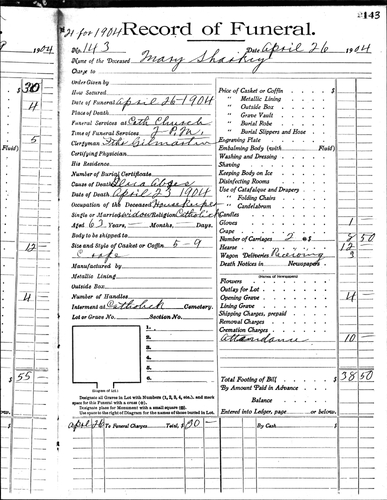 143
21 for 1904 Record of Funeral.
1904 No. 143 Date April 26 1904
Name of the Deceased Mary Sharkey
Charge to
Order Given by
How Secured
Date of Funeral April 26 1904
Place of Death
Funeral Services at Cath Church
Time of Funeral Services 2 P.M.
Clergyman
Certifying Physician
His Residence
Number of Burial Certificate
Cause of Death
Date of Death April 23 1904
Occupation of the Deceased Housekeeper
Single or Married widow Religion Catholick
Aged 63 Years, Months, Days.
Body to be shipped to
Size and Style of Casket or Coffin 5-9
Manufactured by
Metallic Lining
Outside Box
Number of Handles
Interment at Catholick Cemetery.
Lot or Grave No. Section No.
1.
2.
3.
4.
5.
6.
(Diagram of Lot.)
Designate all Graves in Lot with Numbers (1, 2, 3, 4, etc.), and mark
space for this Funeral with a cross (x).
Designate place for Monument with a small square
Use space to the right of Diagram for the names of those buried in Lot.
April 26 To Funeral Charges Total, $
Price of Casket or Coffin
" Metallic Lining
" Outside Box
" Grave Vault
" Burial Robe
" Burial Slippers and Hose
Engraving Plate
Embalming Body (with Fluid)
Washing and Dressing
Shaving
Keeping Body on Ice
Disinfecting Rooms
Use of Catafalque and Drapery
" Folding Chairs
" Candelabrum
Candles
Gloves 1
Crape
Number of Carriages 2 @ $ 8 50
Hearse 12
Wagon Deliveries 3
Death Notices in Newspapers
Flowers
Outlay for Lot
Opening Grave 4
Lining Grave
Shipping Charges, prepaid
Removal Charges
Cremation Charges
Attendance 10
Total Footing of Bill 38 50
By Amount Paid in Advance
Balance
Entered into Ledger, page or below.
By Cash
4
5
Fluid)
12
4
$ 55